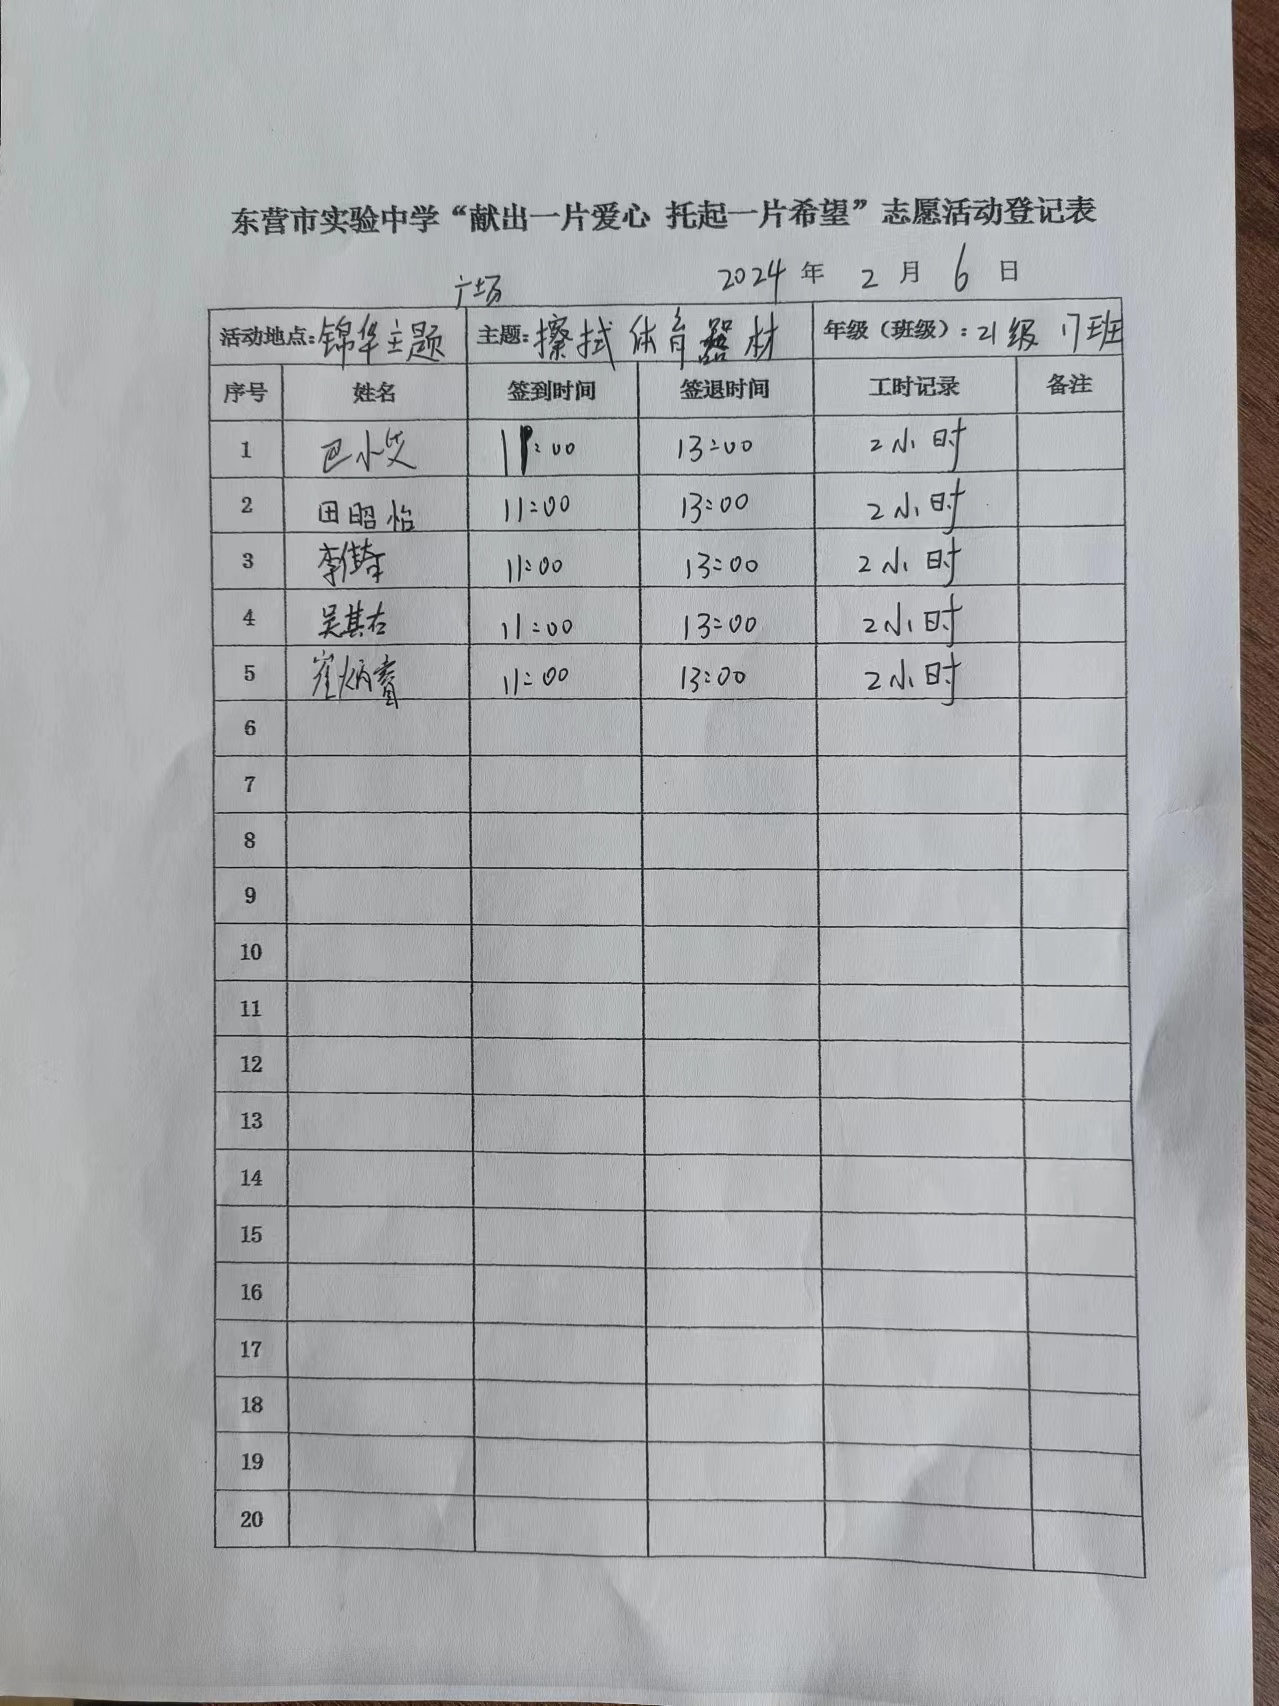 东营市实验中学“献出一片爱心 托起一片希望”志愿活动登记表
2024年 2月 6日
广场
活动地点:锦华主题 主题:擦拭体育器材 年级（班级）:21级17班
序号 姓名 签到时间 签退时间 工时记录 备注
1 巴小艾 11:00 13:00 2小时
2 田昭怡 11:00 13:00 2小时
3 李倩 11:00 13:00 2小时
4 吴其右 11:00 13:00 2小时
5 崔炳 11:00 13:00 2小时
6
7
8
9
10
11
12
13
14
15
16
17
18
19
20